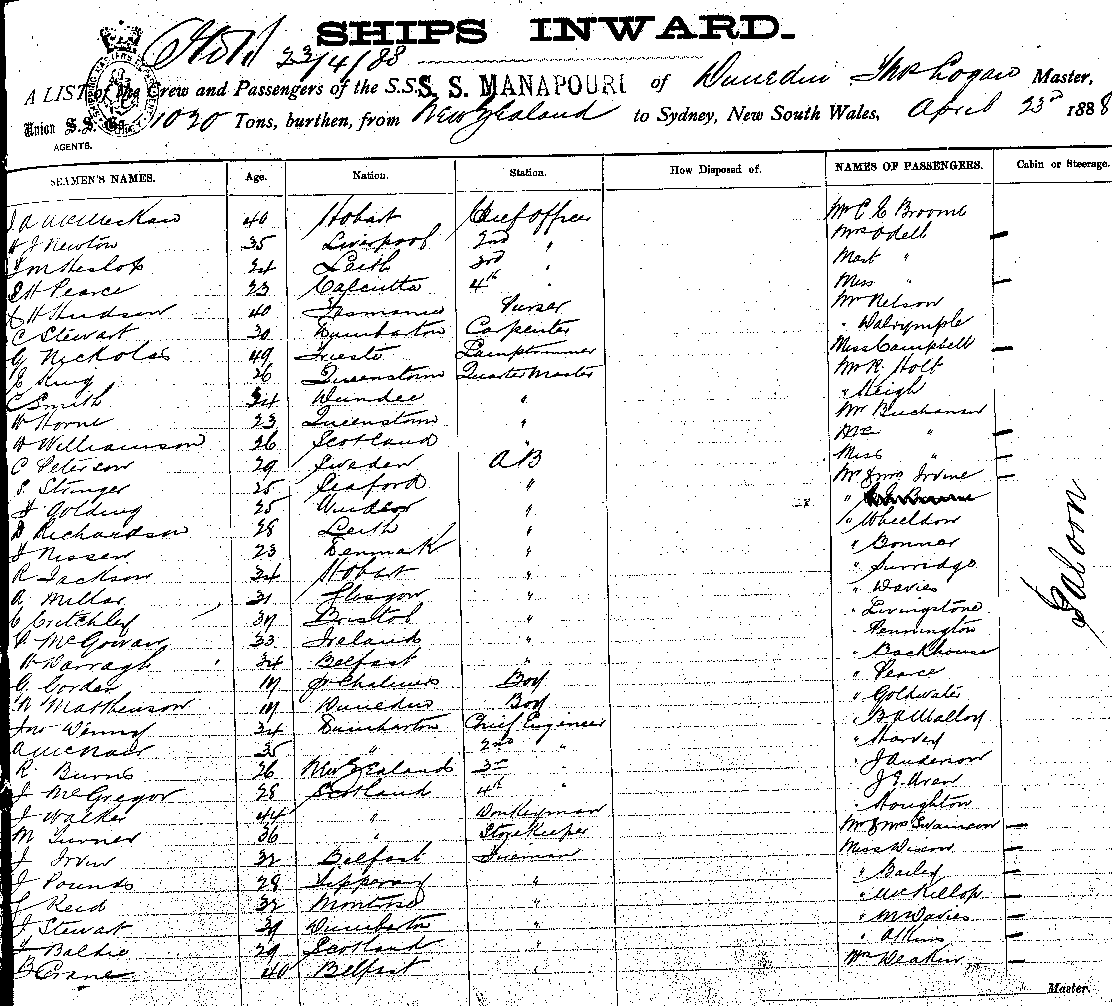 SHIPS INWARD.
23/4/88
A LIST of the Crew and Passengers of the S.S. S. S. MANAPOURI of Dunedin Thos Logan Master,
Union S.S. Co. 1020 Tons, burthen, from New Zealand to Sydney, New South Wales, April 23rd 1888
AGENTS.
SEAMEN'S NAMES. Age. Nation. Station. How Disposed of. NAMES OF PASSENGERS. Cabin or Steerage.
40 Hobart Chief Officer Mr C E Broome
H J Newton 35 Liverpool 2nd " Mrs Odell
Heslop 24 Leith 3rd " Mast "
Pearce 23 Calcutta 4th " Miss "
Hudson 40 Tasmania Purser Mr Nelson
C Stewart 30 Dumbarton Carpenter " Dalrymple
G Nicholas 49 Trieste Lamptrimmer Miss Campbell
King 26 Queenstown Quarter Master Mr R. Holt
C Smith 34 Dundee " " Sleigh
W Horne 23 Queenstown " Mr Buchanan
W Williamson 26 Scotland " "
C Peterson 29 Sweden AB Miss "
S. Stringer 25 Seaford " Mr & Mrs Irvine
Golding 25 Windsor " "
D Richardson 28 Leith " " Wheeldon
J Nissen 23 Denmark " " Bonner
R Jackson 34 Hobart " " Surridge
A Millar 31 Glasgow " " Davies
C Critchley 37 Bristol " " Livingstone
McGowan 33 Ireland " " Pennington
W Darragh 34 Belfast " " Backhouse
G. Corder 17 Pt Chalmers Boy " Pearce
N Mathewson 17 Dunedin Boy " Goldwater
Jno Denny 34 Dumbarton Chief Engeneer "
A McNair 35 " 2nd " " Harvey
R Burns 26 New Zealand 3rd " J Anderson
J McGregor 28 Scotland 4th " J J
J Walker 44 " Donkeyman " Houghton
M Turner 36 " Storekeeper Mr & Mrs Swainson
J Irvin 32 Belfast Fireman Miss Dixon
J Pounds 28 Tipperary " " Bailey
J Reid 32 Montrose " " McKillop
J Stewart 39 Dumbarton " " M Davies
Baldie 29 Scotland " "
Crane 40 Belfast " Mrs Deakin
Saloon
Master.